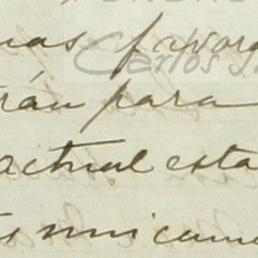 nas favora
rán para
actual esta
s unicame